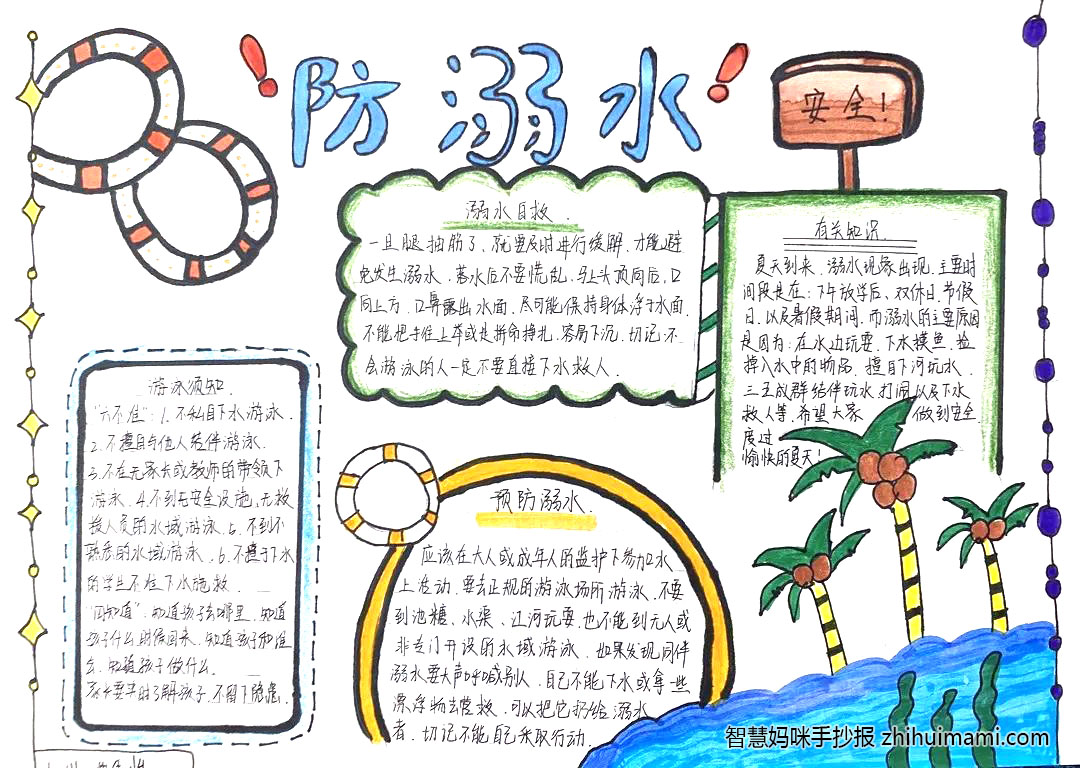 防溺水
安全!
溺水自救.
一旦腿抽筋了、就要及时进行缓解,才能避
免发生溺水.落水后不要慌乱,马上头顶向后,口
向上方,口鼻露出水面,尽可能保持身体浮于水面,
不能把手往上举或是拼命挣扎,容易下沉,切记:不
会游泳的人一定不要直接下水救人.
有关知识.
夏天到来,溺水现象出现,主要时
间段是在:下午放学后、双休日.节假
日.以及暑假期间,而溺水的主要原因
是因为:在水边玩耍.下水摸鱼.捡
掉入水中的物品.擅自下河玩水.
三五成群结伴玩水.打闹以及下水
救人等,希望大家 做到安全
度过
愉快的夏天!
游泳须知.
"六不准":1.不私自下水游泳.
2.不擅自与他人结伴游泳.
3.不在无家长或教师的带领下
游泳.4.不到无安全设施,无救
援人员的水域游泳.5.不到不
熟悉的水域游泳.6.不擅于下水
的学生不准下水施救.
"四知道".知道孩子去哪里.知道
孩子什么时候回来.知道孩子和谁
去.知道孩子做什么.
家长要平时了解孩子.不留下隐患.
预防溺水.
应该在大人或成年人的监护下参加水
上活动.要去正规的游泳场所游泳.不要
到池塘、水渠、江河玩耍.也不能到无人或
非专门开设的水域游泳.如果发现同伴
溺水要大声呼喊别人.自己不能下水或拿一些
漂浮物去营救.可以把它扔给溺水
者.切记不能自己采取行动.
智慧妈咪手抄报 zhihuimami.com